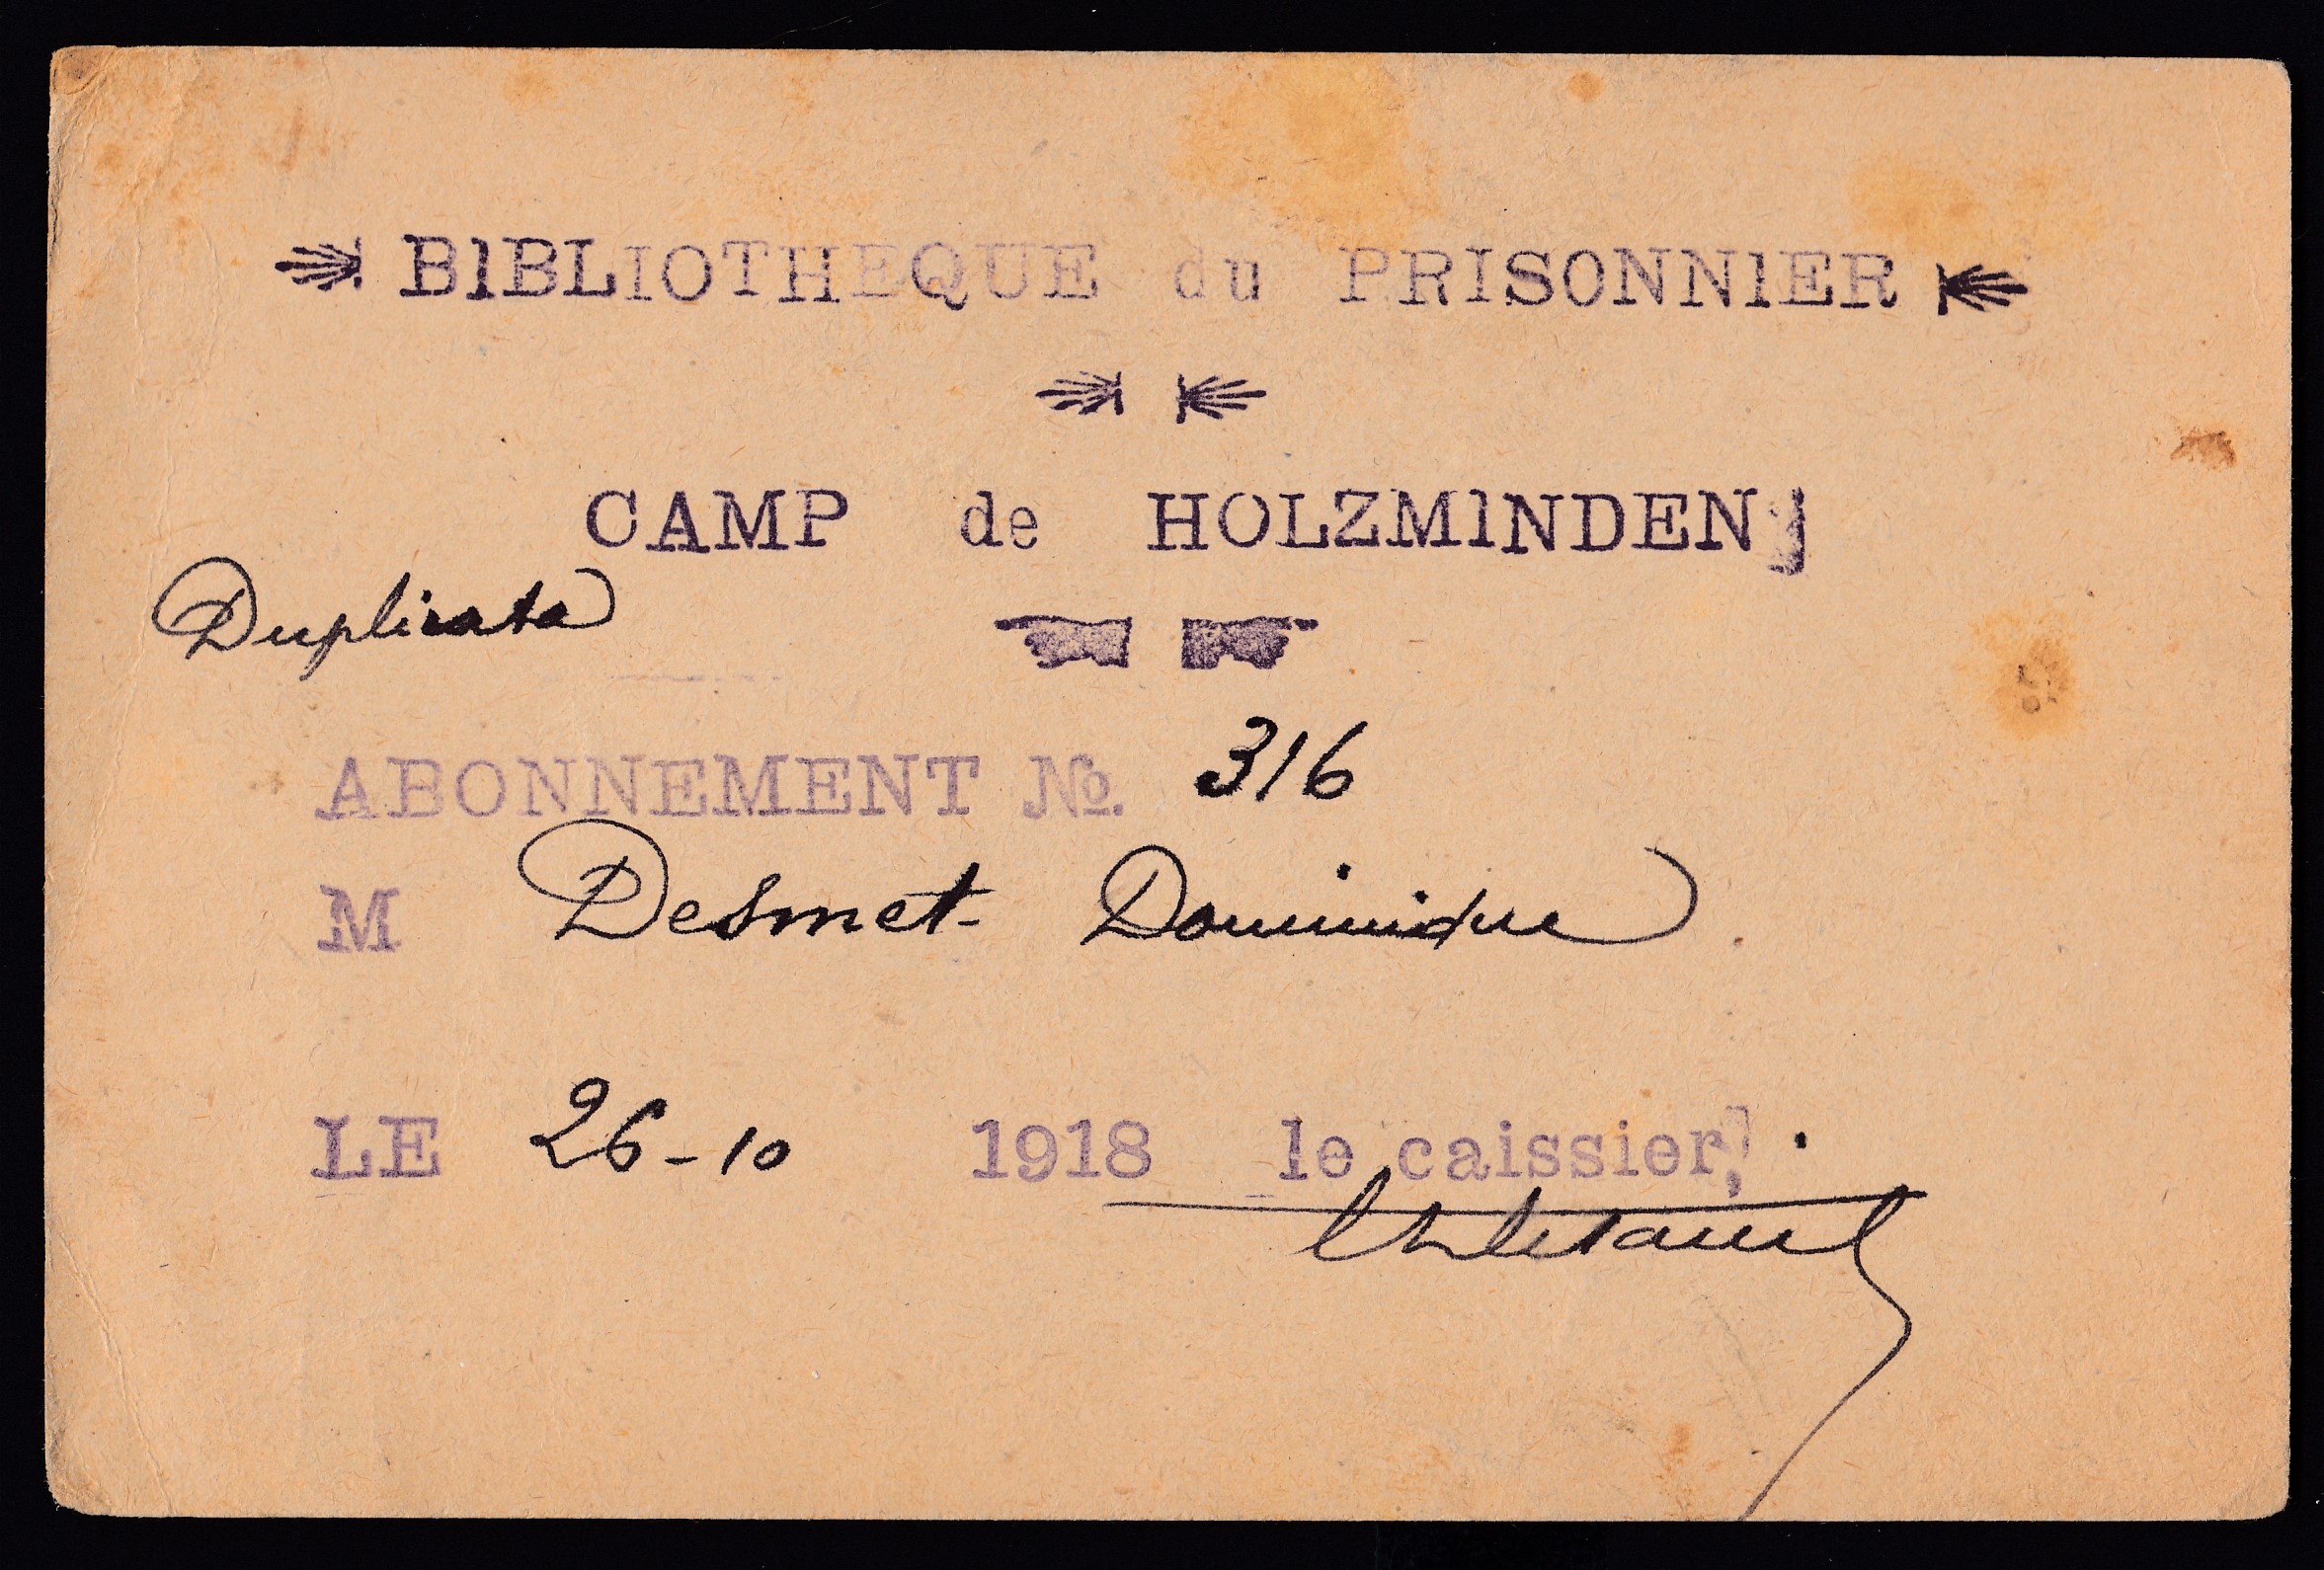 BIBLIOTHEQUE du PRISONNIER
CAMP de HOLZMINDEN
Duplicata
ABONNEMENT No. 316
M Desmet Dominique
LE 26-10 1918 le caissier,